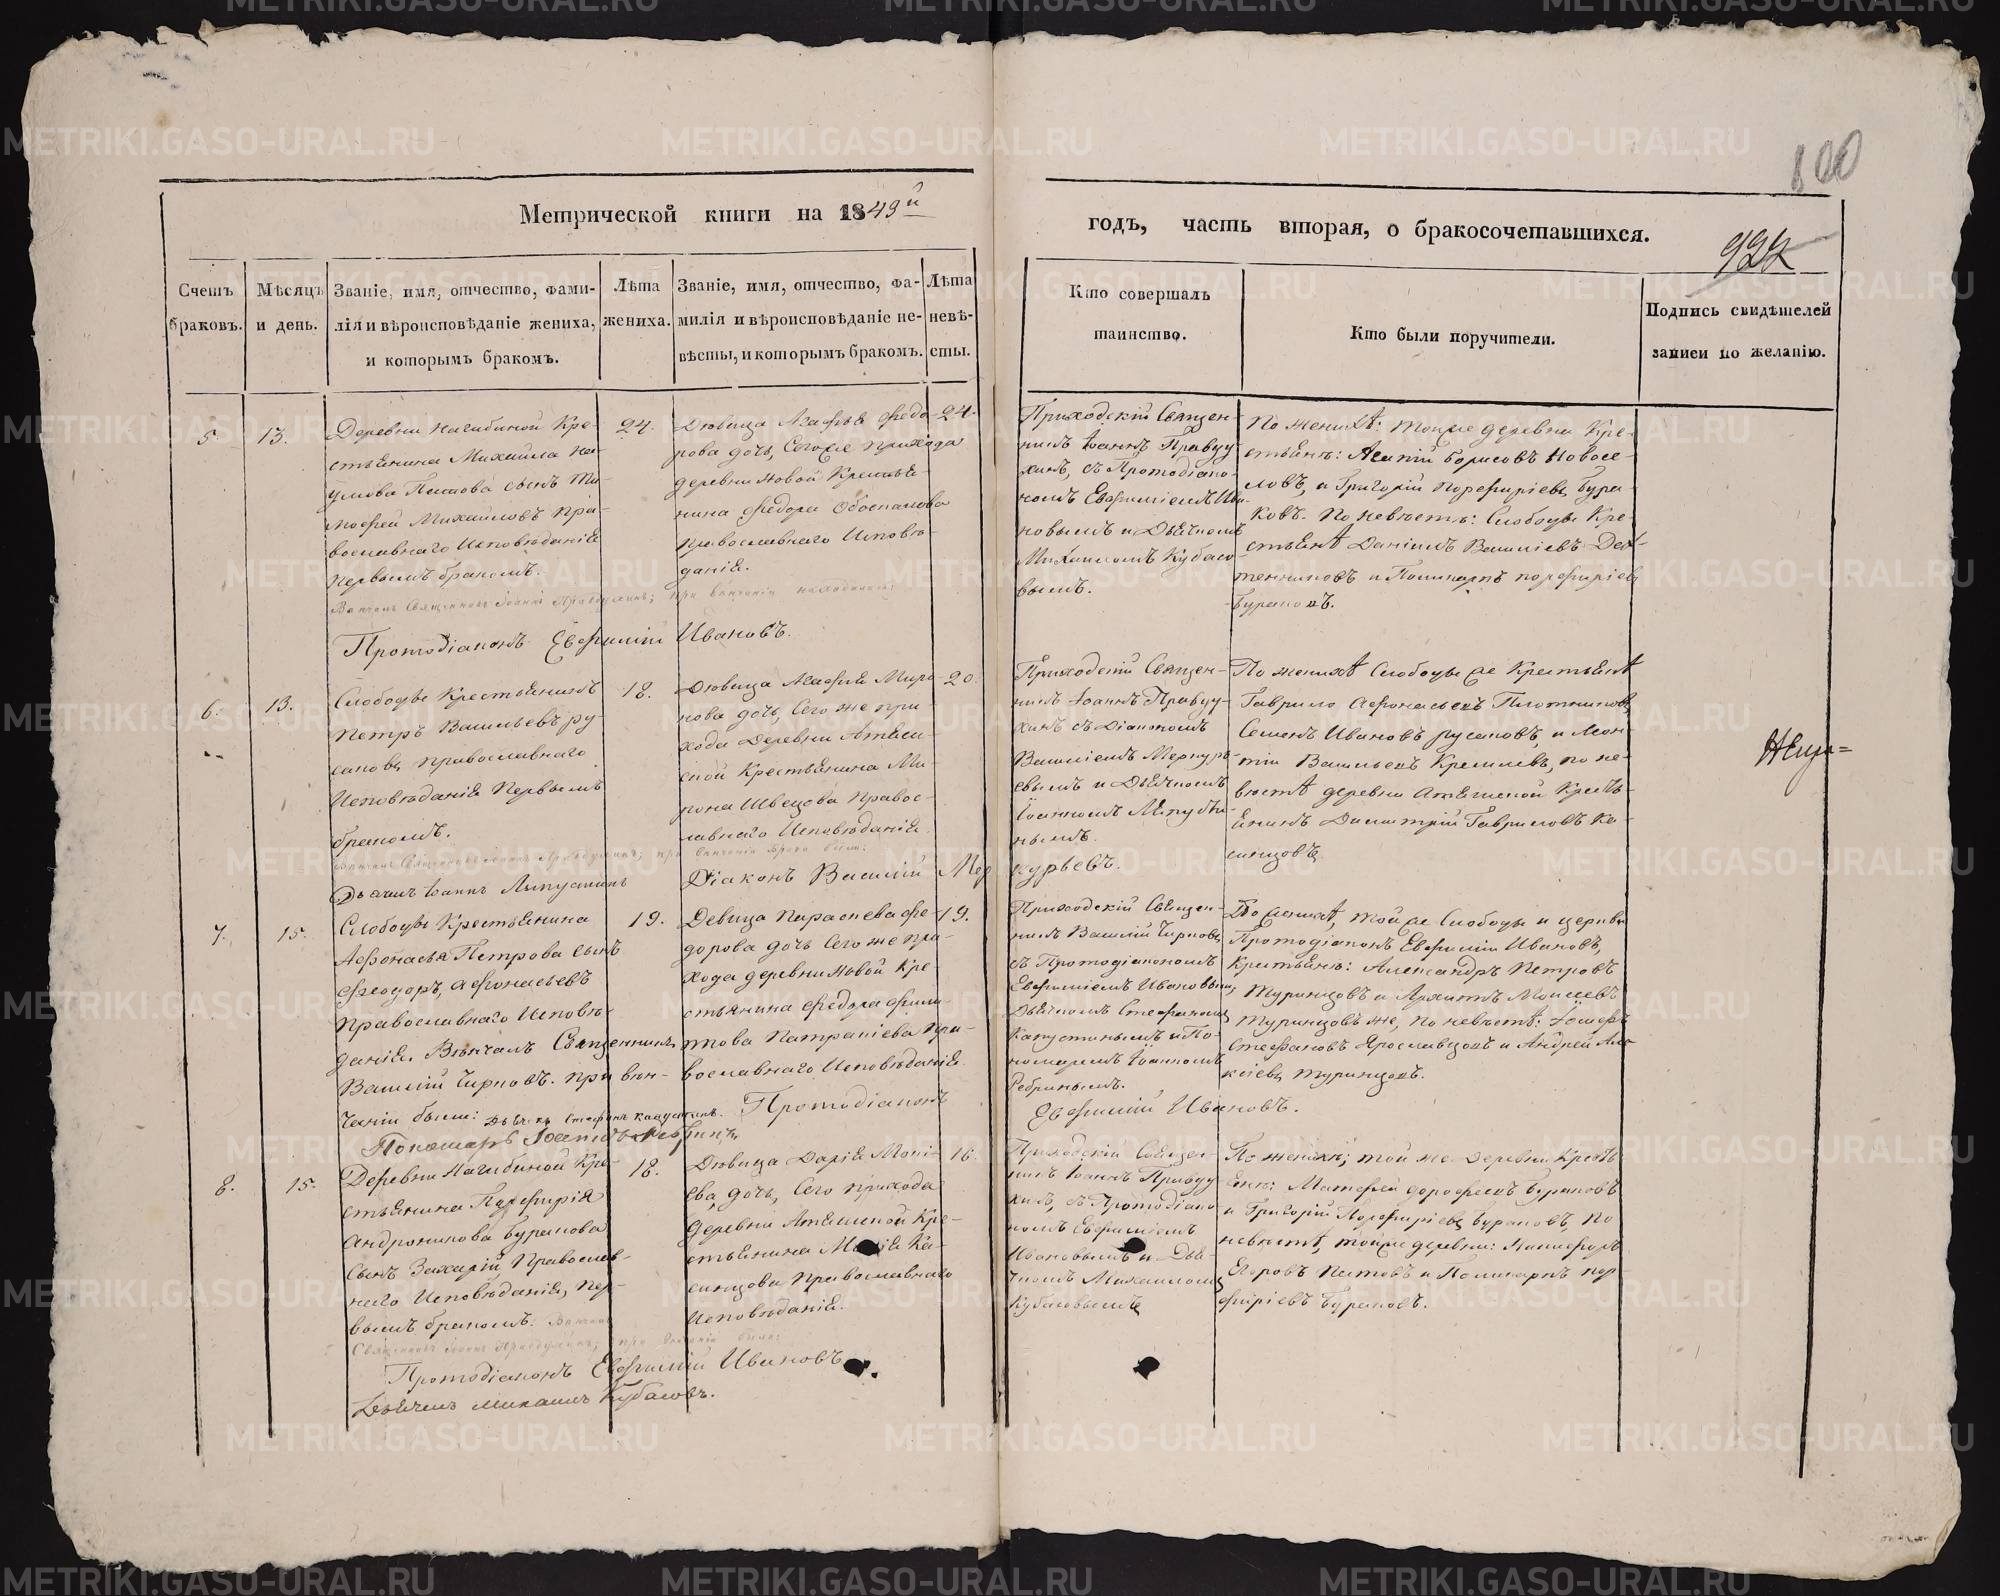 100
Метрической книги на 1849й
годъ, часть вторая, о бракосочетавшихся.
922
Счетъ браковъ.
Мѣсяцъ и день.
Званіе, имя, отчество, фами-
лія и вѣроисповѣданіе жениха,
и которымъ бракомъ.
Лѣта
жениха.
Званіе, имя, отчество, фа-
милія и вѣроисповѣданіе не-
вѣсты, и которымъ бракомъ.
Лѣта
невѣ-
сты.
Кто совершалъ
таинство.
Кто были поручители.
Подпись свидѣтелей
записи по желанію.
5.
13.
Деревни Нагибиной Кре-
стьянина Михайла На-
умова Пытова сынъ Ти-
мофей Михайловъ пра-
вославнаго Исповѣданія
первымъ бракомъ.
Вѣнчалъ Священникъ Іоаннъ Правдухинъ; при вѣнчаніи находились:
Протодіаконъ Евфимій Ивановъ.
24.
Дѣвица Агафья Федо-
рова дочь, Сего же прихода
деревни Новой Крестья-
нина Федора
православнаго Исповѣ-
данія.
24.
Приходскій Священ-
никъ Іоаннъ Правду-
хинъ, съ Протодіако-
номъ Евфиміемъ Ива-
новымъ и Дьячкомъ
Михаиломъ Кубасо-
вымъ.
По женихѣ: тойже деревни Кре-
стьяне: Борисовъ Новосе-
ловъ, и Григорій Порфирьевъ Бура-
ковъ. По невѣстѣ: Слободы Кре-
стьяне Даніилъ Васильевъ
и Поликарпъ Порфирьевъ
Бураковъ.
6.
13.
Слободы Крестьянинъ
Петръ Васильевъ Ру-
саковъ православнаго
Исповѣданія первымъ
бракомъ.
Дьячекъ Іоаннъ Лапустинъ
18.
Дѣвица Агафія Миро-
нова дочь, Сего же при-
хода Деревни Атяш-
ской Крестьянина Ми-
рона Швецова Правос-
лавнаго Исповѣданія.
Діаконъ Василій Мер
курьевъ.
20.
Приходскій Священ-
никъ Іоаннъ Правду-
хинъ съ Діакономъ
Василіемъ Меркурь-
евымъ и Дьячкомъ
Іоанномъ Лапусти-
нымъ.
По женихѣ Слободы же Крестьяне
Гаврило Афонасьевъ Плотниковъ,
Семенъ Ивановъ Русаковъ, и
Васильевъ Кремлевъ, по не-
вѣстѣ деревни Атяшской Кресть-
янинъ Димитрій Гавриловъ Ка-
синцовъ.
7.
15.
Слободы Крестьянина
Афонасья Петрова сынъ
Феодоръ Афонасьевъ
Православнаго Исповѣ-
данія. Вѣнчалъ Священникъ
Василій Чирковъ. При вѣн-
чаніи были: Дьячекъ Стефанъ Капустинъ.
Пономарь Іоаннъ Ребринъ.
19.
Девица Параскева Фе-
дорова дочь Сего же при-
хода деревни Новой Кре-
стьянина Федора Филип-
това Патракіева Пра-
вославнаго Исповѣданія.
Протодіаконъ
Евфимій Ивановъ.
19.
Приходскій Священ-
никъ Василій Чирковъ
съ Протодіакономъ
Евфиміемъ Ивановымъ
Дьячкомъ Стефаномъ
Капустинымъ и По-
номаремъ Іоанномъ
Ребринымъ.
По женихѣ, той же Слободы и церкви
Протодіаконъ Евфимій Ивановъ,
Крестьяне: Александръ Петровъ
Туринцовъ и Архипъ Моисеевъ
Туринцовъ же, по невѣстѣ:
Стефановъ Ярославцовъ и Андрей Але-
ксіевъ Туринцовъ.
8.
15.
Деревни Нагибиной Кре-
стьянина Порфирія
Андроникова Буракова
Сынъ Захарій Православ-
наго Исповѣданія, пер-
вымъ бракомъ. Вѣнчалъ
Священникъ Іоаннъ Правдухинъ; при вѣнчаніи были:
Протодіаконъ Евфимій Ивановъ.
Дьячекъ Михаилъ Кубасовъ.
18.
Дѣвица Дарія Моки-
ева дочь, Сего прихода
деревни Атяшской Кре-
стьянина Мокія Ка-
синцова Православнаго
Исповѣданія.
16.
Приходскій Священ-
никъ Іоаннъ Правду-
хинъ, съ Протодіако-
номъ Евфиміемъ
Ивановымъ и Дья-
чкомъ Михаиломъ
Кубасовымъ
По женихѣ; той же деревни Кресть-
яне: Матфей Дорофеевъ Бураковъ
и Григорій Порфирьевъ Бураковъ, по
невѣстѣ, тойже деревни: Никифоръ
Егоровъ Пытовъ и Поликарпъ Пор-
фирьевъ Бураковъ.